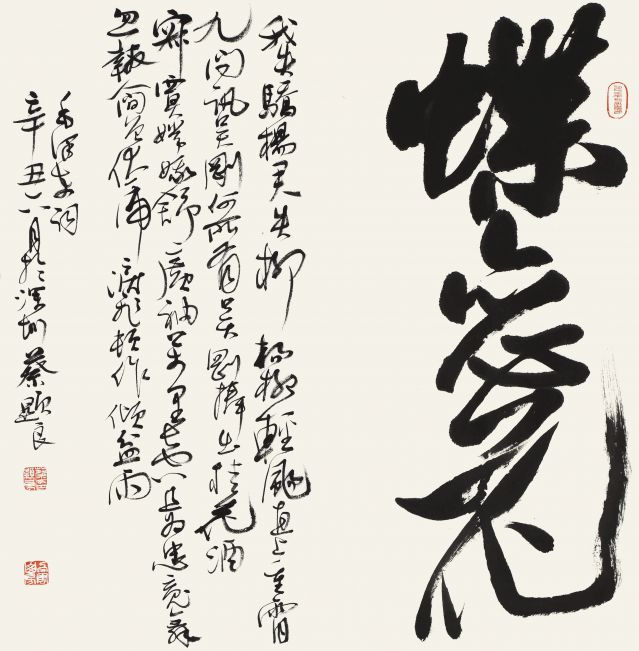 蝶恋花
我失驕楊君失柳楊柳輕颺直上重霄
九問訊吳剛何所有吳剛捧出桂花酒
寂寞嫦娥舒廣袖萬里長空且為忠魂舞
忽報人間曾伏虎淚飛頓作傾盆雨
毛澤東詞
辛丑月於深圳蔡顯良